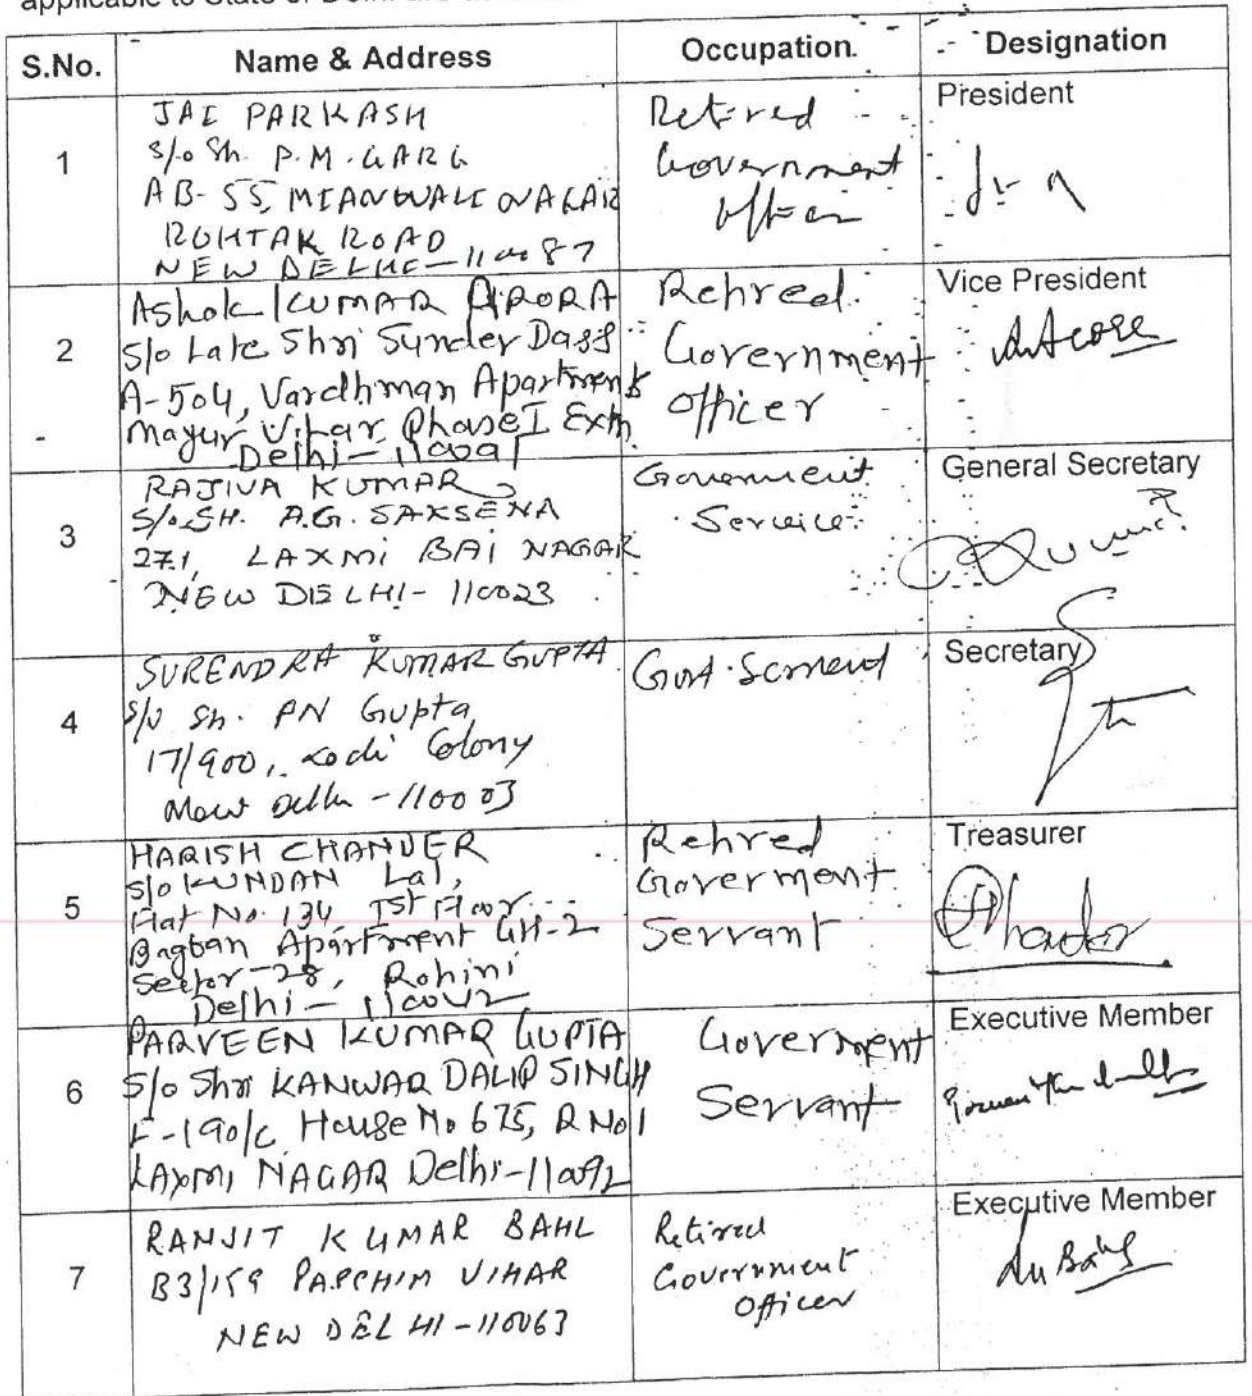 applicable to State of Delhi are as
S.No. Name & Address Occupation. Designation
1
JAI PARKASH
S/o Sh. P.M. GARG
AB-55, MIANWALI NAGAR
ROHTAK ROAD
NEW DELHI-110087
Retired
Government
Officer
President
2
Ashok KUMAR ARORA
S/o Late Shri Sunder Dass
A-504, Vardhman Apartment
Mayur Vihar Phase I Extn
Delhi-110091
Retired
Government
Officer
Vice President
3
RAJIVA KUMAR
S/o.SH. A.G. SAKSENA
271, LAXMI BAI NAGAR
NEW DELHI-110023
Government
Service
General Secretary
4
SURENDRA KUMAR GUPTA
S/o Sh. PN Gupta
17/900, Lodi Colony
New Delhi-110003
Govt. Servant
Secretary
5
HARISH CHANDER
S/o KUNDAN Lal,
Flat No. 134, Ist Floor
Bagban Apartment GH-2
Sector-28, Rohini
Delhi-110042
Retired
Goverment
Servant
Treasurer
6
PARVEEN KUMAR GUPTA
S/o Shri KANWAR DALIP SINGH
F-190/C House No 675, R No 1
LAXMI NAGAR Delhi-110092
Goverment
Servant
Executive Member
7
RANJIT KUMAR BAHL
B3/159 PASCHIM VIHAR
NEW DELHI-110063
Retired
Government
Officer
Executive Member